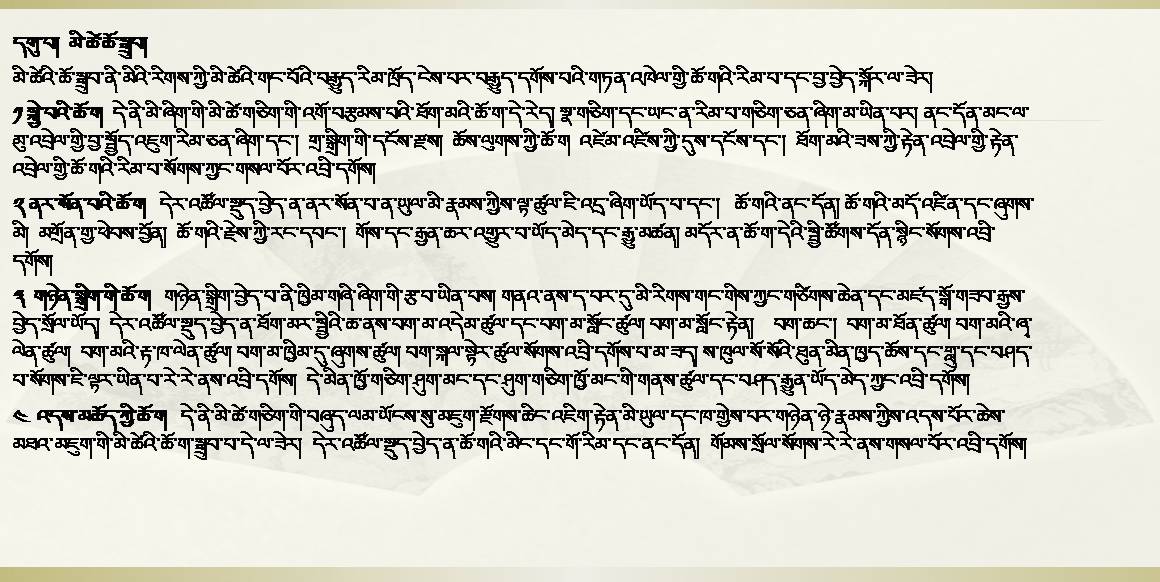 དགུ་པ། མི་ཚེ་ཆོ་སྒྲུབ།
མི་ཚེའི་ཆོ་སྒྲུབ་ནི་མིའི་རིགས་ཀྱི་མི་ཚེའི་གང་བོའི་བརྒྱུད་རིམ་ཁྲོད་ངེས་པར་བརྒྱུད་དགོས་པའི་གཏན་འཁེལ་གྱི་ཆོ་གའི་རིམ་པ་དང་བྱ་བྱེད་སྐོར་ལ་ཟེར།
༡ སྐྱེ་བའི་ཆོ་ག དེ་ནི་མི་ཞིག་གི་མི་ཚེ་གཅིག་གི་འགོ་བརྩམས་པའི་ཐོག་མའི་ཆོ་ག་དེ་རེད། སྣ་གཅིག་དང་ཡང་ན་རིམ་པ་གཅིག་ཅན་ཞིག་མ་ཡིན་པར། ནང་དོན་མང་ལ་
ཕྲུ་འབྲེལ་གྱི་བྱ་སྤྱོད་འཇུག་རིམ་ཅན་ཞིག་དང་། གྲ་སྒྲིག་གི་དངོས་རྫས། ཆོས་ལུགས་ཀྱི་ཆོ་ག འཛོམ་འཛོས་ཀྱི་དུས་དངོས་དང་། ཐོག་མའི་ཟས་ཀྱི་རྟེན་འབྲེལ་གྱི་རྟེན་
འབྲེལ་གྱི་ཆོ་གའི་རིམ་པ་སོགས་ཀྱང་གསལ་པོར་འབྲི་དགོས།
༢ ནར་སོན་པའི་ཆོ་ག དེར་འཚོལ་སྡུད་བྱེད་ན་ནར་སོན་པ་ན་ཡུལ་མི་རྣམས་ཀྱིས་ལྟ་ཚུལ་ཇི་འདྲ་ཞིག་ཡོད་པ་དང་། ཆོ་གའི་ནང་དོན། ཆོ་གའི་མདོ་འཛིན་དང་ཞུགས་
མི། མགྲོན་གྱ་ཕེབས་བྱོན། ཆོ་གའི་རྗེས་ཀྱི་རང་དབང་། གོས་དང་རྒྱན་ཆར་འགྱུར་བ་ཡོད་མེད་དང་རྒྱུ་མཚན། མདོར་ན་ཆོ་ག་དེའི་སྤྱི་ཚོགས་དོན་སྙིང་སོགས་འབྲི་
དགོས།
༣ གཉེན་སྒྲིག་གི་ཆོ་ག གཉེན་སྒྲིག་བྱེད་པ་ནི་ཁྱིམ་གཞི་ཞིག་གི་རྩ་བ་ཡིན་པས། གནའ་ནས་ད་བར་དུ་མི་རིགས་གང་གིས་ཀྱང་གཙིགས་ཆེན་དང་མཛད་སྒོ་གཟབ་རྒྱས་
བྱེད་སྲོལ་ཡོད། དེར་འཚོལ་སྡུད་བྱེད་ན་ཐོག་མར་སྤྱིའི་ཆ་ནས་བག་མ་འདེམ་ཚུལ་དང་བག་མ་སློང་ཚུལ། བག་མ་སློང་རྟེན། བག་ཆང་། བག་མ་ཐོན་ཚུལ། བག་མའི་ཞྭ་
ལེན་ཚུལ། བག་མའི་རྟ་ཁ་ལེན་ཚུལ། བག་མ་ཁྱིམ་དུ་ཞུགས་ཚུལ། བག་སྐལ་སྟེར་ཚུལ་སོགས་འབྲི་དགོས་པ་མ་ཟད། ས་ཁུལ་སོ་སོའི་ཐུན་མིན་ཁྱད་ཆོས་དང་གླུ་དང་བཤད་
པ་སོགས་ཇི་ལྟར་ཡིན་པ་རེ་རེ་ནས་འབྲི་དགོས། དེ་མིན་ཁྱོ་གཅིག་ཤུག་མང་དང་ཤུག་གཅིག་ཁྱོ་མང་གི་གནས་ཚུལ་དང་བཤད་རྒྱུན་ཡོད་མེད་ཀྱང་འབྲི་དགོས།
༤ འདས་མཆོད་ཀྱི་ཆོ་ག དེ་ནི་མི་ཚེ་གཅིག་གི་བཞུད་ལམ་ཡོངས་སུ་མཇུག་རྫོགས་ཆིང་འཇིག་རྟེན་མི་ཡུལ་དང་ཁ་གྱེས་པར་གཉེན་ཉེ་རྣམས་ཀྱིས་འདས་པོར་ཆེས་
མཐའ་མཇུག་གི་མི་ཚེའི་ཆོ་ག་སྒྲུབ་པ་དེ་ལ་ཟེར། དེར་འཚོལ་སྡུད་བྱེད་ན་ཆོ་གའི་མིང་དང་གོ་རིམ་དང་ནང་དོན། གོམས་སྲོལ་སོགས་རེ་རེ་ནས་གསལ་པོར་འབྲི་དགོས།